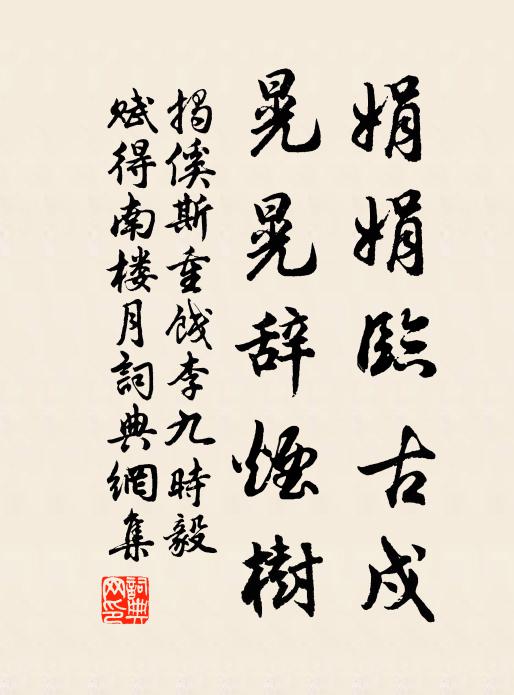 娟娟臨古戍
晃晃辞煙樹
揭傒斯重餞李九時毅
赋得南楼月詞典網集
詞典网印